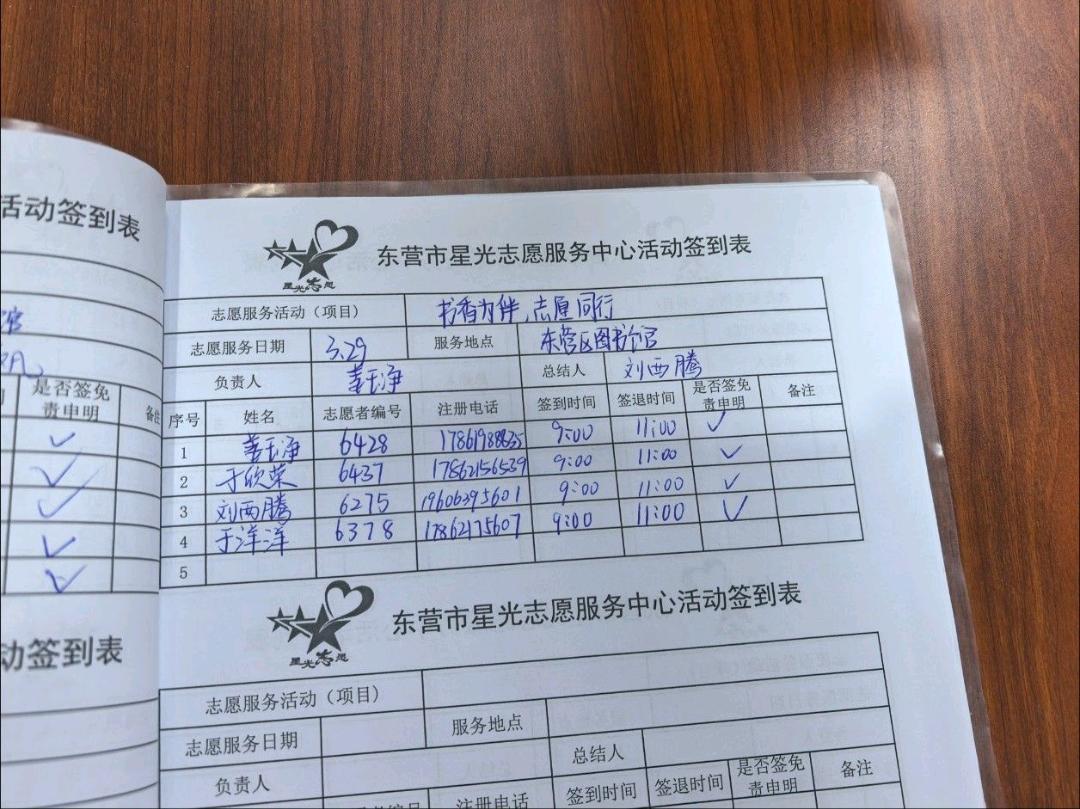 活动签到表
是否签免
责申明
备注
动签到表
星光志愿
东营市星光志愿服务中心活动签到表
志愿服务活动（项目） 书香为伴，志愿同行
志愿服务日期 3.29 服务地点 东营区图书馆
负责人 姜玉净 总结人 刘西腾
序号 姓名 志愿者编号 注册电话 签到时间 签退时间 是否签免责申明 备注
1 姜玉净 6428 9:00 11:00 ✓
2 于欣荣 6437 17862156539 9:00 11:00 ✓
3 刘西腾 6275 19606395601 9:00 11:00 ✓
4 于洋洋 6378 17862175607 9:00 11:00 ✓
5
星光志愿
东营市星光志愿服务中心活动签到表
志愿服务活动（项目）
志愿服务日期 服务地点
负责人 总结人
注册电话 签到时间 签退时间 是否签免责申明 备注